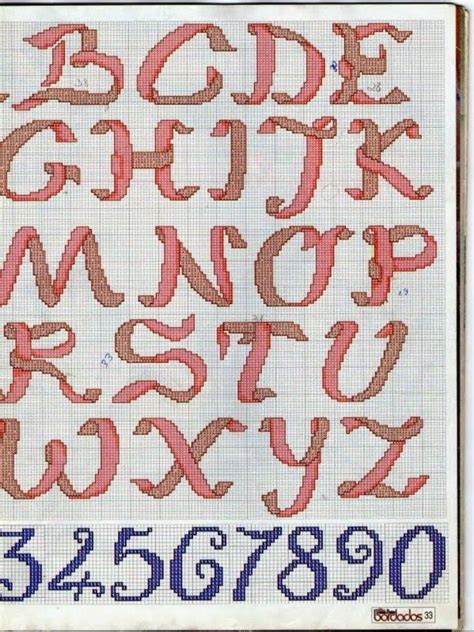 B C D E
G H I J K
M N O P
R S T U
W X Y Z
3 4 5 6 7 8 9 0
bordados 33